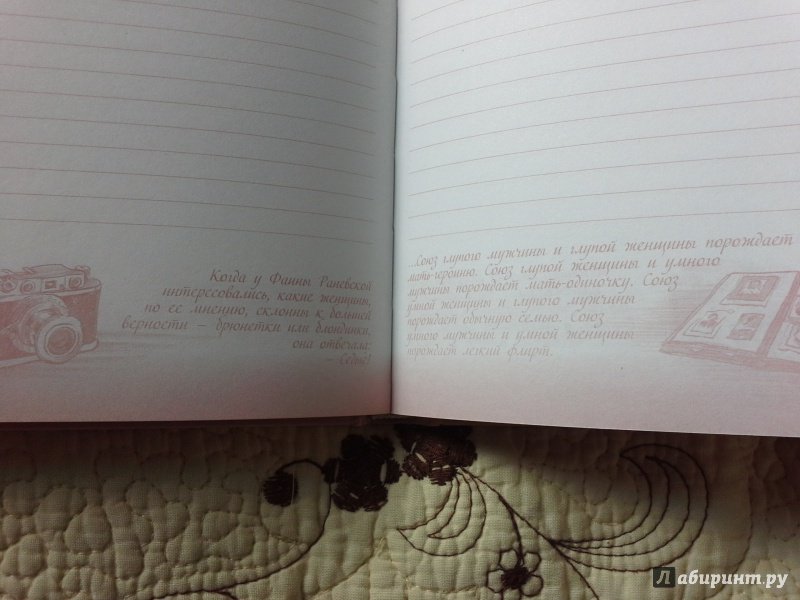 Когда у Фаины Раневской
интересовались, какие женщины,
по ее мнению, склонны к большей
верности — брюнетки или блондинки,
она отвечала:
— Седые!
...Союз глупого мужчины и глупой женщины порождает
мать-героиню. Союз глупой женщины и умного
мужчины порождает мать-одиночку. Союз
умной женщины и глупого мужчины
порождает обычную семью. Союз
умного мужчины и умной женщины
порождает легкий флирт.
Лабиринт.ру